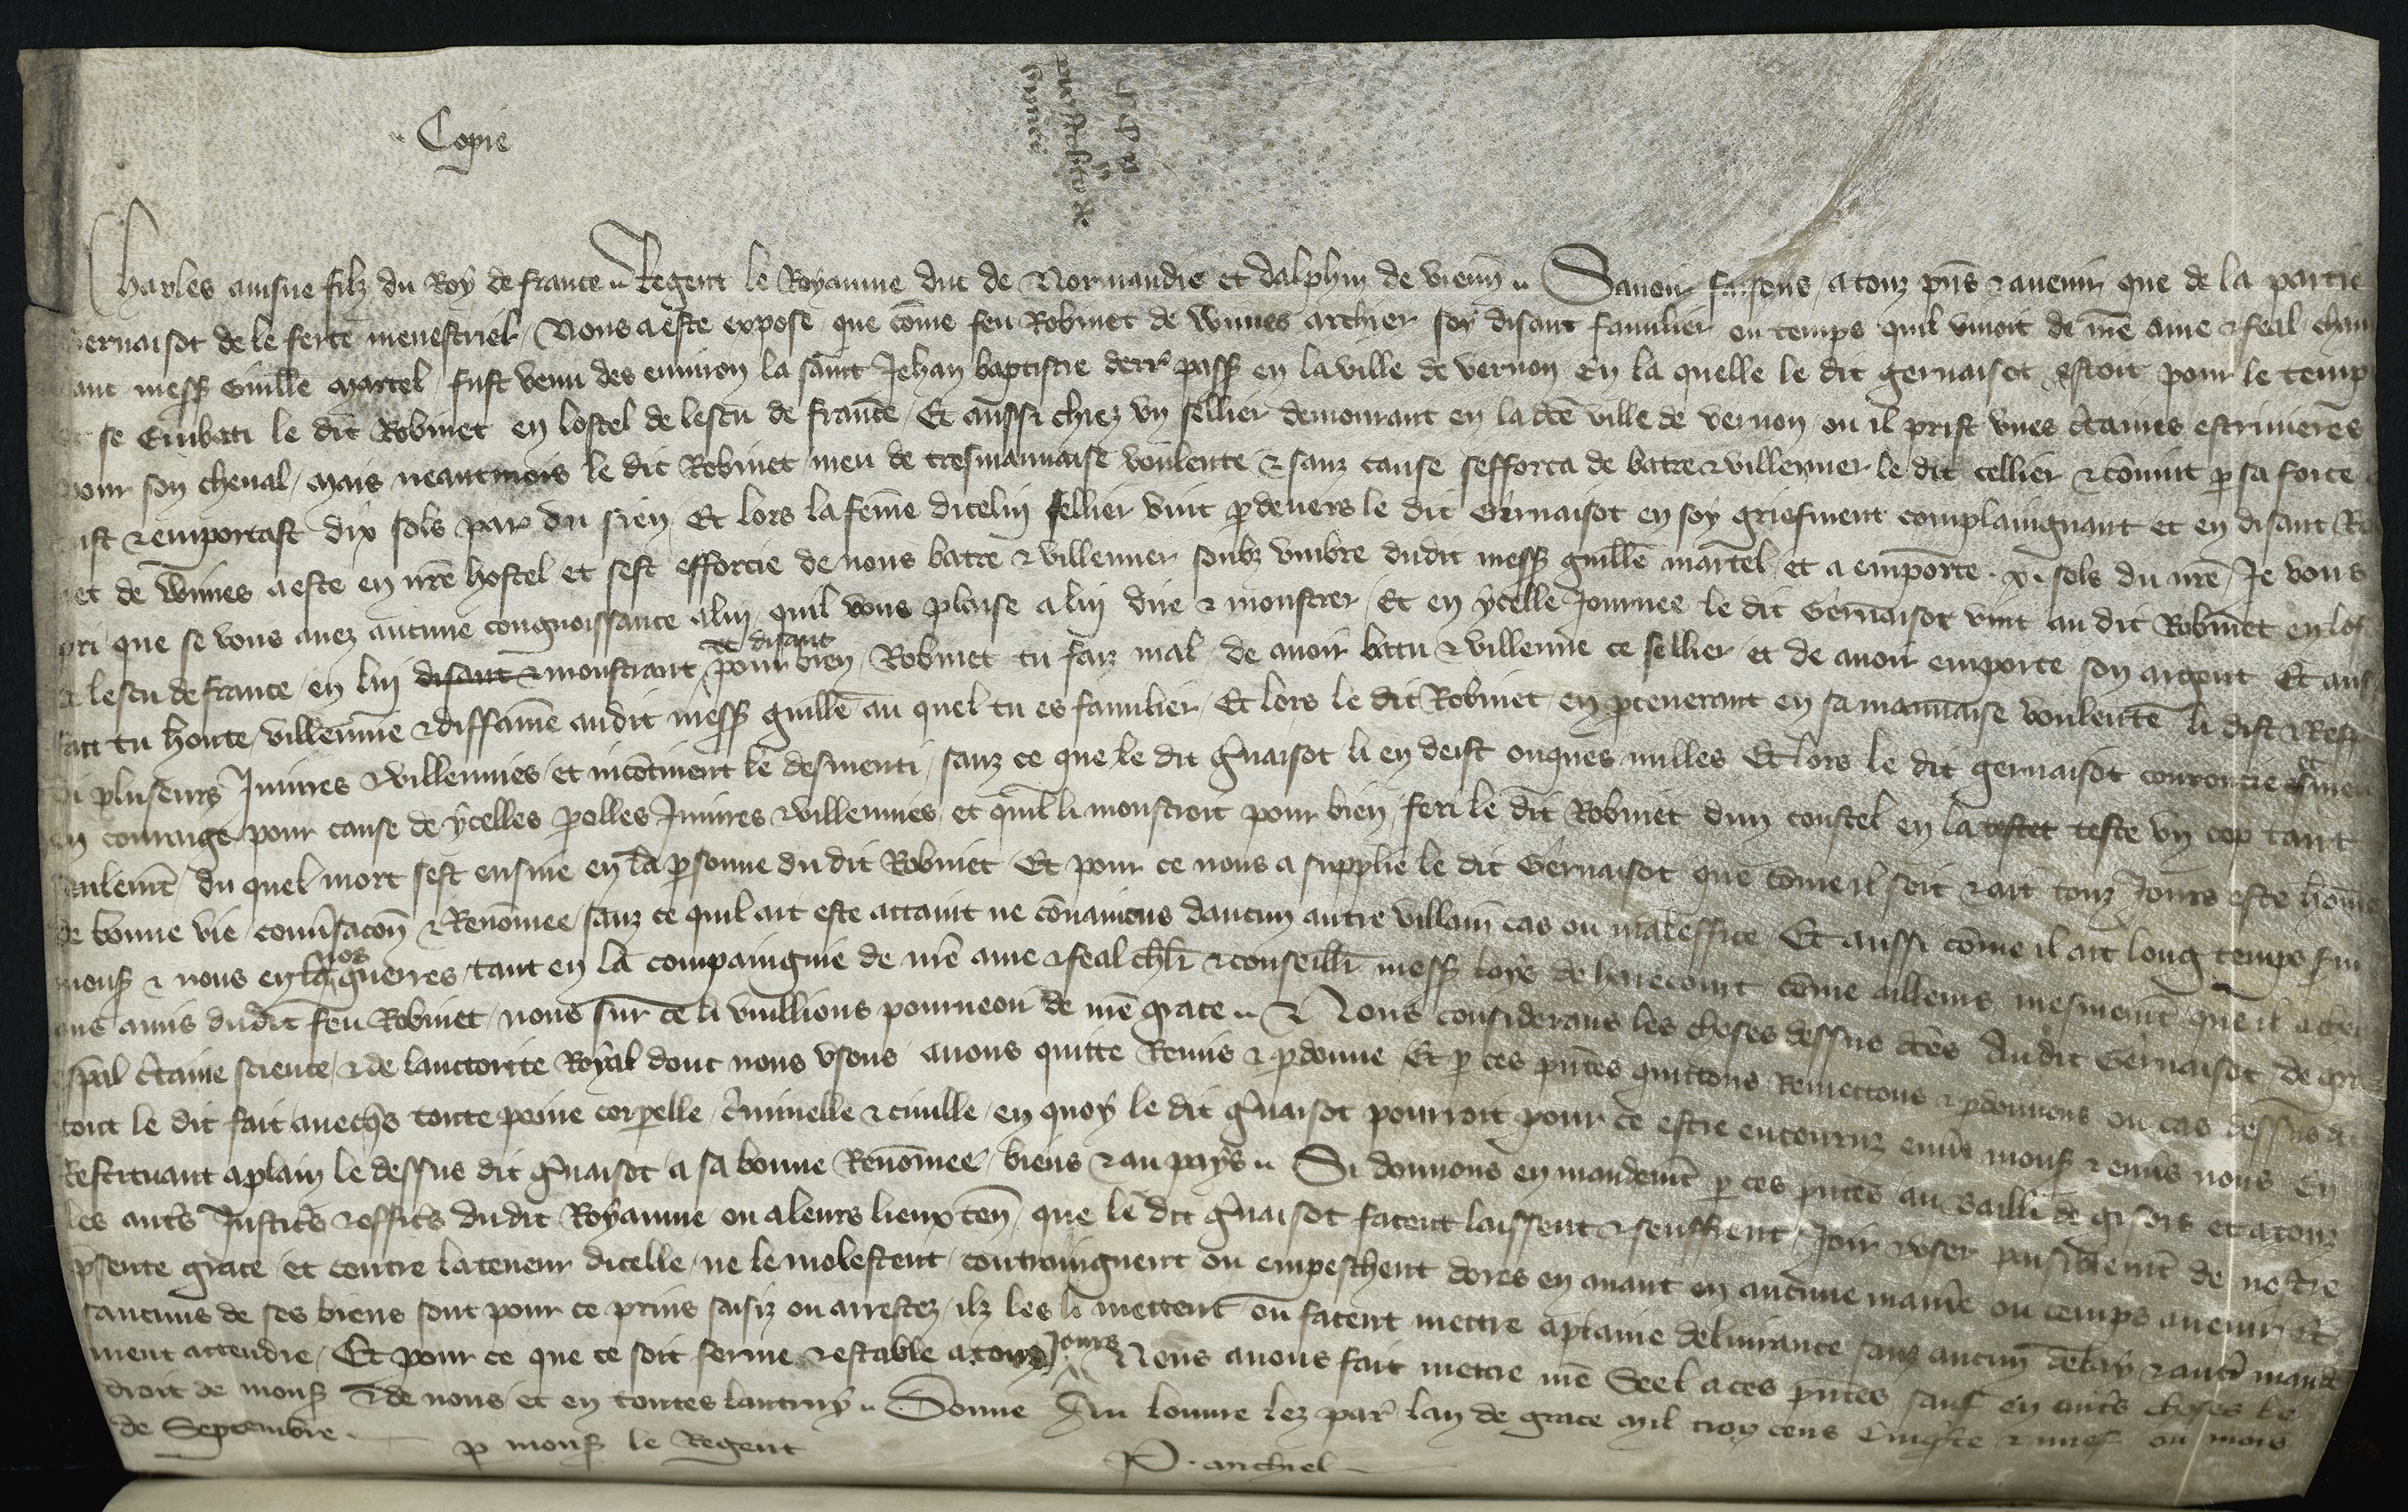 Copie
Charles ainsne filz du Roy de france Regent le Royaume duc de Normandie et dalphin de vienn Sauoir faisons a touz pñs & auenir que de la partie
Gernaisot de le ferte menestriel / Nous a este expose que cõme feu Robinet de Wimes archier soy disant familier ou temps quil viuoit de nr̃e ame & feal cham
mess Guille Martel fust venu des enuiron la saint Jehan baptistre derr passe en la ville de vernon En la quelle le dit gernaisot estoit pour le temp
se Embati le dit Robinet en lostel de lescu de france / Et aussi chiez vn sellier demourant en la dc̃e ville de vernon ou il prist vnes c̃taines estriuieres
pour son cheual / Mais neantmois le dit Robinet meu de tresmauuaise voulente & sanz cause sefforca de batre & villenner le dit cellier & cõuint p sa force
& emportast dix sols par du sien / Et lors la fem̃e dicelui sellier vint p deuers le dit Gernaisot en soy griefment complaingnant et en disant Ro
et de Wimes a este en nr̃e hostel et sest efforcie de nous batre & villenner soubz vmbre dudit mess guille martel / et a emporte .x. sols du nr̃e / Je vous
pri que se vous auez aucune congnoissance a lui quil vous plaise a lui dire & monstrer / Et en ycelle Journee le dit Gernaisot vint au dit Robinet en los
lescu de france / en lui disant & monstrant et disant pour bien / Robinet tu faiz mal de auoir batu & villenne ce sellier et de auoir emporte son argent Et aus
tu honte / villennie & diffame audit mess guille au quel tu es familier / Et lors le dit Robinet en p̃ceuerant en sa mauuaise voulente li dist &
plusieurs Iniures & villennies / et incõtinent le desmenti / sanz ce que le dit g̃naisot li en deist onques nulles Et lors le dit gernaisot couroucie et
en couraige pour cause de ycelles p̃olles Iniures & villennies et quil li monstroit pour bien / feri le dit Robinet dun coustel en la teste vn cop tant
seulemt̃ / du quel mort sest ensuie en la p̃sonne du dit Robinet Et pour ce nous a supplie le dit Gernaisot que cõme il soit & ait touz Jours este hõme
de bonne vie conũsacoñ & Renom̃ee / sanz ce quil ait este attaint ne cõuaincus daucun autre villain cas ou maleffice / Et aussi cõme il ait long temps
mons & nous en nos guerres / tant en la compaingnie de nr̃e ame & feal chlr̃ & conseillr̃ mess loys de harecourt cõme ailleurs mesmemt̃ que il
amis dudit feu Robinet / nous sur ce li vuillions pourueoir de nr̃e grace & Nous considerans les choses dessus dc̃es Au dit Gernaisot de gra
esp̃al c̃taine science / & de lauctorite Royal dont nous vsons auons quitte Remis & p̃donne Et p ces pñtes quittons Remettons & p̃donnons ou cas dessus
tout le dit fait auecq̃s toute peine corpelle / c̃iminelle & ciuille / en quoy le dit g̃naisot pourroit pour ce estre encouruz enũs mons & enũs nous En
Restituant a plain le dessus dit g̃naisot a sa bonne Renom̃ee / biens & au pays Si donnons en mandemt̃ p ces pñtes au Bailli de gisors et a touz
les autr̃s Justic̃s & offic̃s dudit Royaume ou a leurs lieux teñ / que le dit g̃naisot facent laissent & seuffrent Joir & vser paisiblemt̃ de nostre
p̃sente grace et contre la teneur dicelle ne le molestent / contraingnent ou empeschent dores en auant en aucune maniẽ ou temps auenir Et
saucuns de ses biens sont pour ce prins saisiz ou arrestez / ilz les li mettent ou facent mettre a plaine deliurance sanz aucun delay & autr̃ mande
ment attendre / Et pour ce que ce soit ferme & estable a touz Jours Nous auons fait mettre nr̃e Seel a ces pñtes sauf en autr̃s choses le
droit de mons & de nous / et en toutes lautruy Donne Au louure lez par̃ lan de grace Mil troys cens Cinqũte & nuef ou mois
de Septembre
p mons le Regent
P. michiel